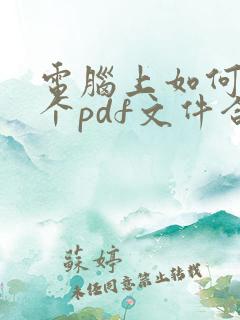 電腦上如何
个pdf文件合
蘇婷
未经同意禁止转载